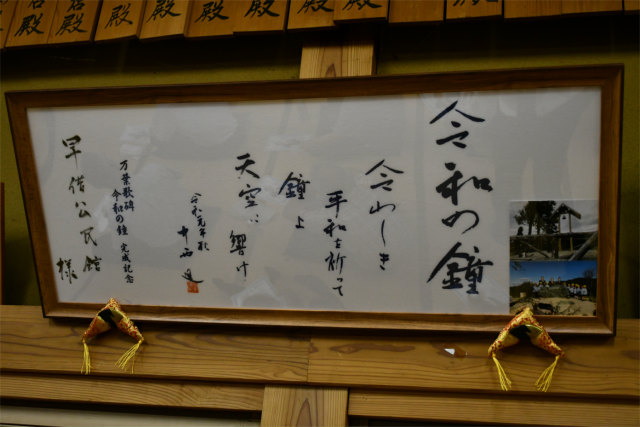 殿
殿
殿
殿
殿
殿
殿
令和の鐘
令わしき
平和を祈って
鐘よ
天空に響け
令和元年秋
中西進
万葉歌碑
令和の鐘 完成記念
早借公民館 様